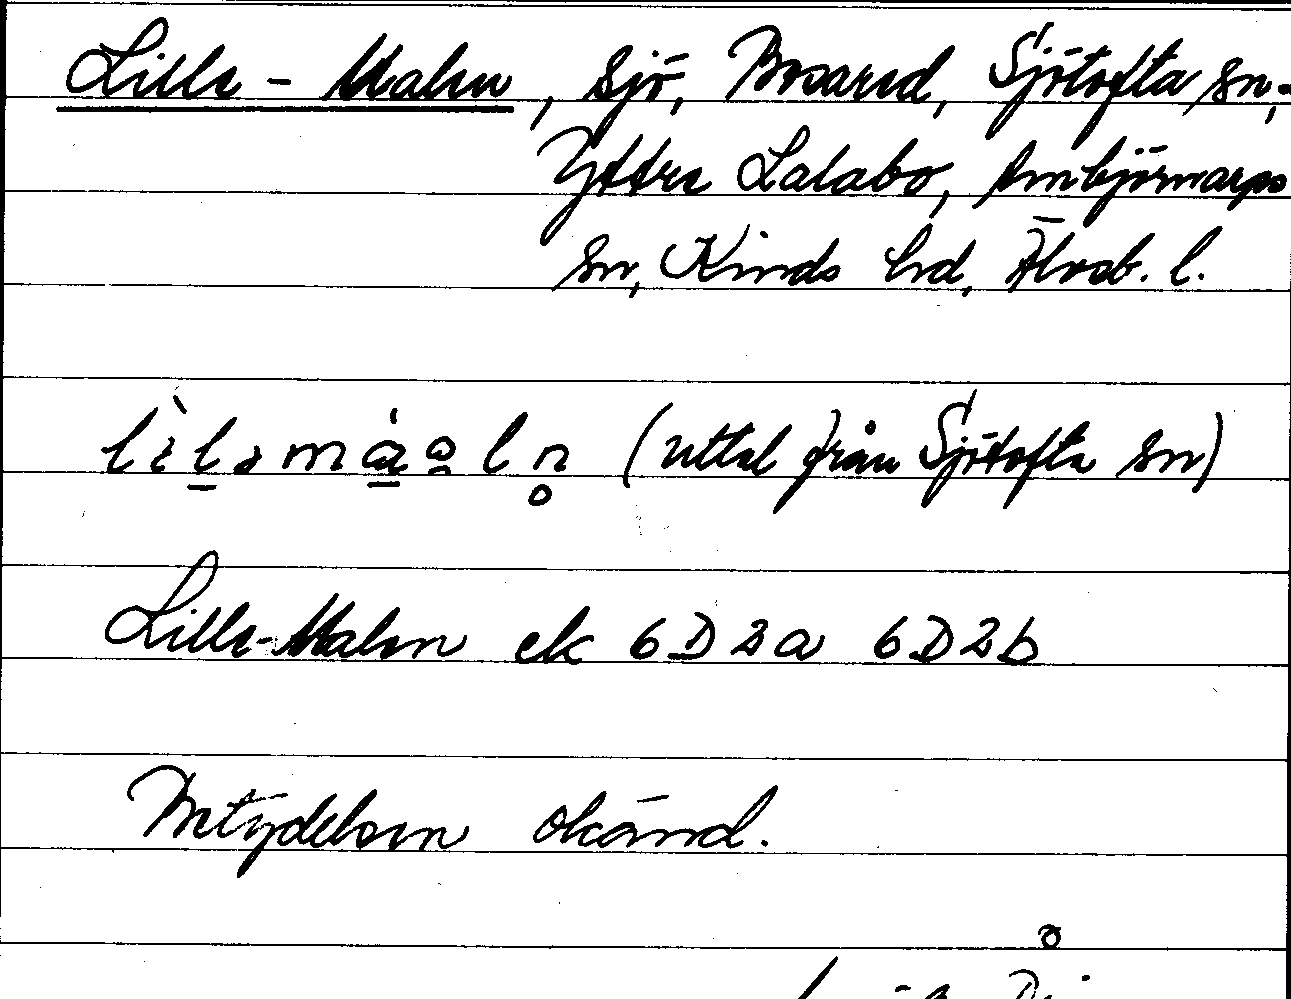 Lilla-Malen, sjö, Bosared, Sjötofta sn,-
Yttre Lalabo, Ambjörnarps
sn, Kinds hd, Älvsb. l.
(uttal från Sjötofta sn)
Lilla-Malen ek 6D2a 6D2b
Betydelsen okänd.